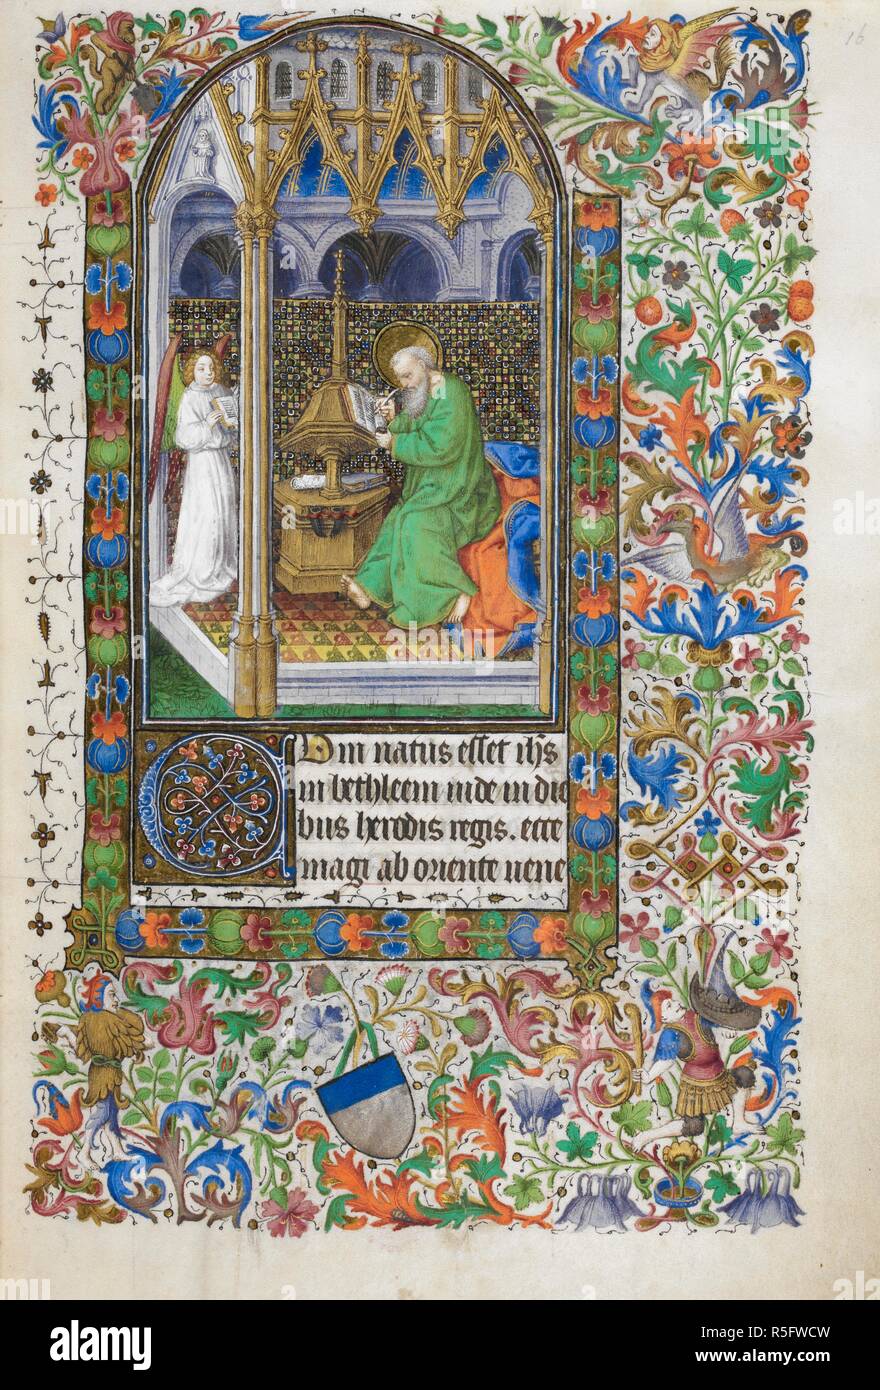 16
Cum natus esset ihs
in bethleem inde in die
bus herodis regis. ecce
magi ab oriente vene
alamy
Image ID: R5FWCW
www.alamy.com